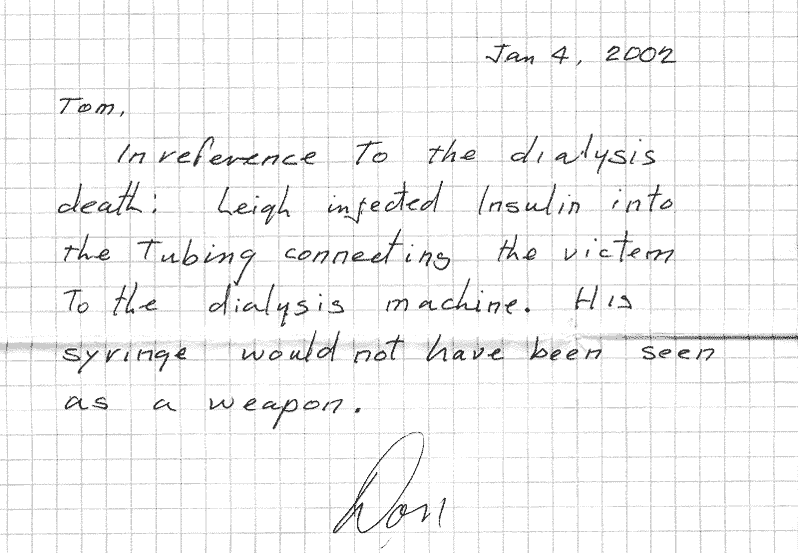 Jan 4, 2002
Tom,
In reference To the dialysis
death: Leigh injected Insulin into
the Tubing connecting the victem
To the dialysis machine. His
syringe would not have been seen
as a weapon.
Don